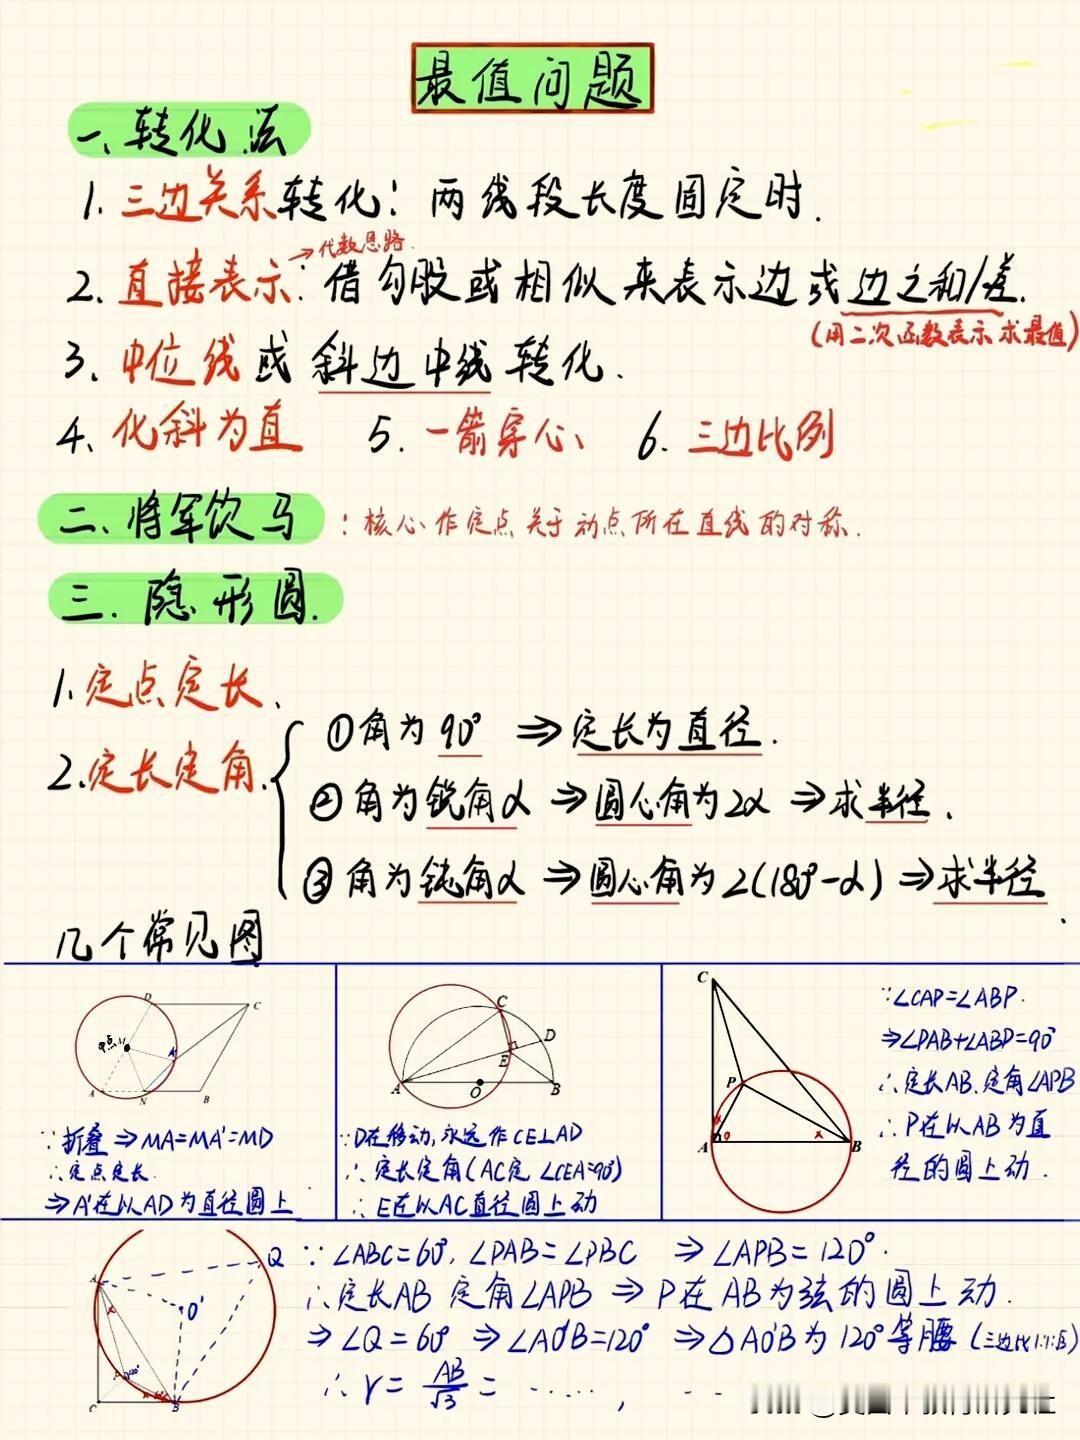 最值问题
一、转化法
1. 三边关系转化：两线段长度固定时.
→代数思路.
2. 直接表示：借勾股或相似来表示边或边之和/差.
(用二次函数表示求最值)
3、中位线或斜边中线转化.
4、化斜为直 5. 一箭穿心、 6. 三边比例
二、将军饮马：核心作定点关于动点所在直线的对称.
三. 隐形圆.
1. 定点定长、
2. 定长定角.
①角为90° ⇒定长为直径.
②角为锐角α ⇒圆心角为2α ⇒求半径.
③角为钝角α ⇒圆心角为2(180°-α) ⇒求半径.
几个常见图
D C 中点M A' A N B
∵折叠⇒MA=MA'=MD
∴定点定长.
⇒A'在以AD为直径圆上
C D E A O B
∵D在移动,永远作CE⊥AD
∴定长定角(AC定 ∠CEA=90°)
∴E在以AC直径圆上动
C P A B
∵∠CAP=∠ABP.
⇒∠PAB+∠ABP=90°
∴定长AB.定角∠APB
∴P在以AB为直
径的圆上动.
A Q O' P 120° C B
∵∠ABC=60°,∠PAB=∠PBC ⇒∠APB=120°.
∴定长AB 定角∠APB ⇒P在AB为弦的圆上动.
⇒∠Q=60° ⇒∠AO'B=120° ⇒△AO'B为120°等腰(三边比1:1:√3)
∴r=AB/√3=……,